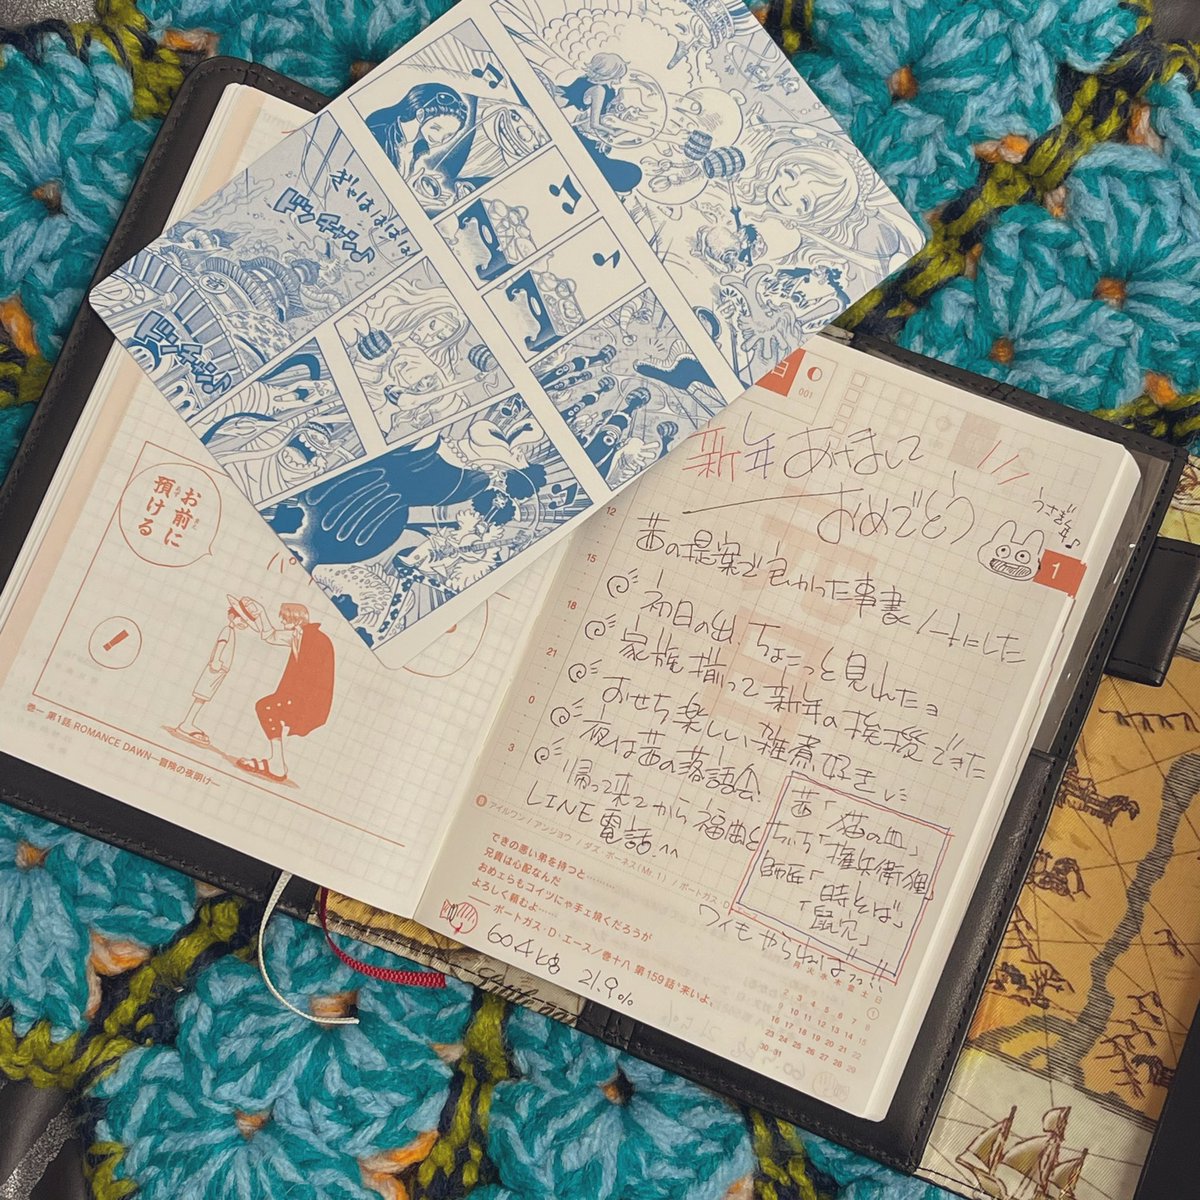 ギャハハハハ
お前に
預ける
!
巻一 第1話 ROMANCE DAWN―冒険の夜明け―
001
新年あけまして
おめでとう
うさぎ年♪
1
茜の提案で良かった事書ノートにした
初日の出、ちょこっと見れたョ
家族揃って新年の挨拶できた
おせち楽しい雑煮好き
夜は茜の落語会
帰って来てから福曲と
LINE電話^^
茜「猫の皿」
「権兵衛狸」
師匠「時そば」
「鼠穴」
ワイもやらねばっっ!!
12
15
18
21
0
3
アイルワン/アンジョウ/ダズ・ボーネス(Mr.1)/ポートガス・D・エース
できの悪い弟を持つと………
兄貴は心配なんだ
おめェらもコイツにゃ手ェ焼くだろうが
よろしく頼むよ……
ポートガス・D・エース/巻十八 第159話“来いよ”
21.9%
月 火 水 木 金 土 日
1
2 3 4 5 6 7 8
9 10 11 12 13 14 15
16 17 18 19 20 21 22
23 24 25 26 27 28 29
30 31